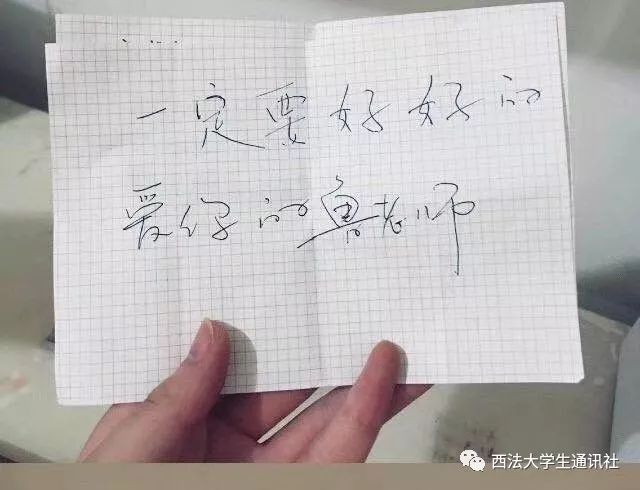 一定要好好的
爱你的鲁老师
西法大学生通讯社